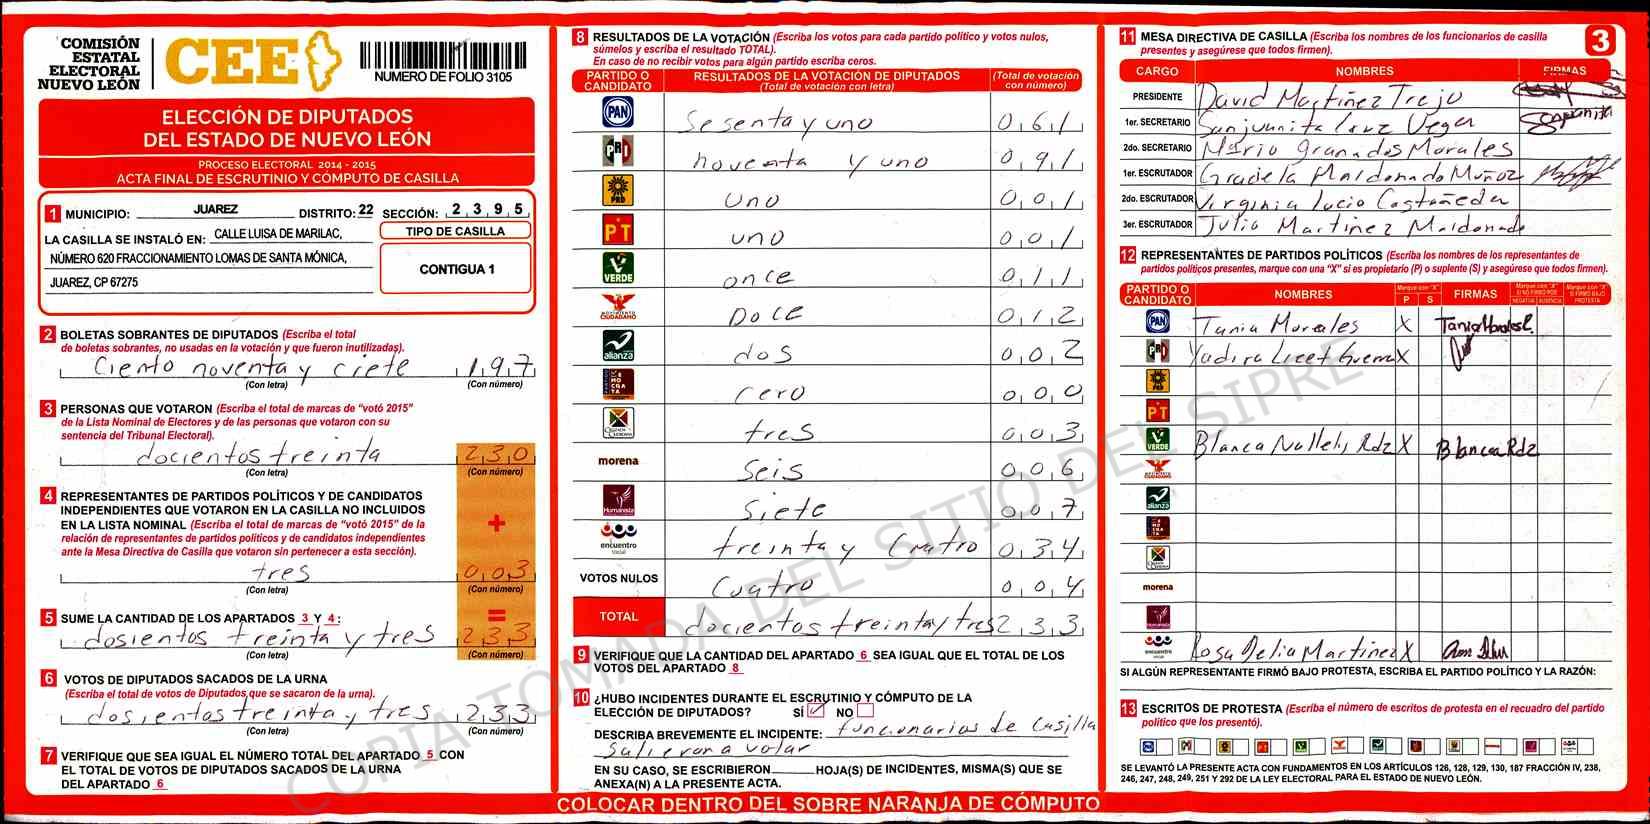 COMISIÓN
ESTATAL
ELECTORAL
NUEVO LEÓN
CEE
NUMERO DE FOLIO 3105
ELECCIÓN DE DIPUTADOS
DEL ESTADO DE NUEVO LEÓN
PROCESO ELECTORAL 2014 - 2015
ACTA FINAL DE ESCRUTINIO Y CÓMPUTO DE CASILLA
1 MUNICIPIO: JUAREZ DISTRITO: 22 SECCIÓN: 2 3 9 5
LA CASILLA SE INSTALÓ EN: CALLE LUISA DE MARILAC,
NÚMERO 620 FRACCIONAMIENTO LOMAS DE SANTA MÓNICA,
JUAREZ, CP 67275
TIPO DE CASILLA
CONTIGUA 1
2 BOLETAS SOBRANTES DE DIPUTADOS (Escriba el total
de boletas sobrantes, no usadas en la votación y que fueron inutilizadas).
Ciento noventa y ciete 1 9 7
(Con letra) (Con número)
3 PERSONAS QUE VOTARON (Escriba el total de marcas de “votó 2015”
de la Lista Nominal de Electores y de las personas que votaron con su
sentencia del Tribunal Electoral).
docientos treinta 2 3 0
(Con letra) (Con número)
4 REPRESENTANTES DE PARTIDOS POLÍTICOS Y DE CANDIDATOS
INDEPENDIENTES QUE VOTARON EN LA CASILLA NO INCLUIDOS
EN LA LISTA NOMINAL (Escriba el total de marcas de “votó 2015” de la
relación de representantes de partidos políticos y de candidatos independientes
ante la Mesa Directiva de Casilla que votaron sin pertenecer a esta sección).
+
tres 0 0 3
(Con letra) (Con número)
5 SUME LA CANTIDAD DE LOS APARTADOS 3 Y 4 :
=
dosientos treinta y tres 2 3 3
(Con letra) (Con número)
6 VOTOS DE DIPUTADOS SACADOS DE LA URNA
(Escriba el total de votos de Diputados que se sacaron de la urna).
dosientos treinta y tres 2 3 3
(Con letra) (Con número)
7 VERIFIQUE QUE SEA IGUAL EL NÚMERO TOTAL DEL APARTADO 5 CON
EL TOTAL DE VOTOS DE DIPUTADOS SACADOS DE LA URNA
DEL APARTADO 6
8 RESULTADOS DE LA VOTACIÓN (Escriba los votos para cada partido político y votos nulos,
súmelos y escriba el resultado TOTAL).
En caso de no recibir votos para algún partido escriba ceros.
PARTIDO O CANDIDATO RESULTADOS DE LA VOTACIÓN DE DIPUTADOS (Total de votación con letra) (Total de votación con número)
PAN Sesenta y uno 0 6 1
PRI noventa y uno 0 9 1
PRD uno 0 0 1
PT uno 0 0 1
VERDE once 0 1 1
MOVIMIENTO CIUDADANO Doce 0 1 2
alianza dos 0 0 2
DEMOCRATA cero 0 0 0
CRUZADA CIUDADANA tres 0 0 3
morena seis 0 0 6
Humanista siete 0 0 7
encuentro social treinta y cuatro 0 3 4
VOTOS NULOS Cuatro 0 0 4
TOTAL docientos treinta y tres 2 3 3
9 VERIFIQUE QUE LA CANTIDAD DEL APARTADO 6 SEA IGUAL QUE EL TOTAL DE LOS
VOTOS DEL APARTADO 8
10 ¿HUBO INCIDENTES DURANTE EL ESCRUTINIO Y CÓMPUTO DE LA
ELECCIÓN DE DIPUTADOS? SÍ ✓ NO
DESCRIBA BREVEMENTE EL INCIDENTE: funcionarios de casilla
Salieron a votar
EN SU CASO, SE ESCRIBIERON HOJA(S) DE INCIDENTES, MISMA(S) QUE SE
ANEXA(N) A LA PRESENTE ACTA.
COLOCAR DENTRO DEL SOBRE NARANJA DE CÓMPUTO
11 MESA DIRECTIVA DE CASILLA (Escriba los nombres de los funcionarios de casilla
presentes y asegúrese que todos firmen).
3
CARGO NOMBRES FIRMAS
PRESIDENTE David Martinez Trejo
1er. SECRETARIO Sanjuanita Cruz Vega
2do. SECRETARIO Mario Granados Morales
1er. ESCRUTADOR Graciela Maldonado Muñoz
2do. ESCRUTADOR Virginia Lucio Castañeda
3er. ESCRUTADOR Julio Martinez Maldonado
12 REPRESENTANTES DE PARTIDOS POLÍTICOS (Escriba los nombres de los representantes de
partidos políticos presentes, marque con una “X” si es propietario (P) o suplente (S) y asegúrese que todos firmen).
PARTIDO O CANDIDATO NOMBRES Marque con “X” P S FIRMAS Marque con “X” SI NO FIRMÓ POR NEGATIVA AUSENCIA Marque con “X” SI FIRMÓ BAJO PROTESTA
PAN Tania Morales X Tania Morales
PRI Yadira Licet Guerra X
PRD
PT
VERDE Blanca Nallely Rdz X Blanca Rdz
MOVIMIENTO CIUDADANO
alianza
morena
Humanista
encuentro social Rosa Delia Martinez X
SI ALGÚN REPRESENTANTE FIRMÓ BAJO PROTESTA, ESCRIBA EL PARTIDO POLÍTICO Y LA RAZÓN:
13 ESCRITOS DE PROTESTA (Escriba el número de escritos de protesta en el recuadro del partido
político que los presentó).
SE LEVANTÓ LA PRESENTE ACTA CON FUNDAMENTOS EN LOS ARTÍCULOS 126, 128, 129, 130, 187 FRACCIÓN IV, 238,
246, 247, 248, 249, 251 Y 292 DE LA LEY ELECTORAL PARA EL ESTADO DE NUEVO LEÓN.
COPIA TOMADA DEL SITIO DEL SIPRE